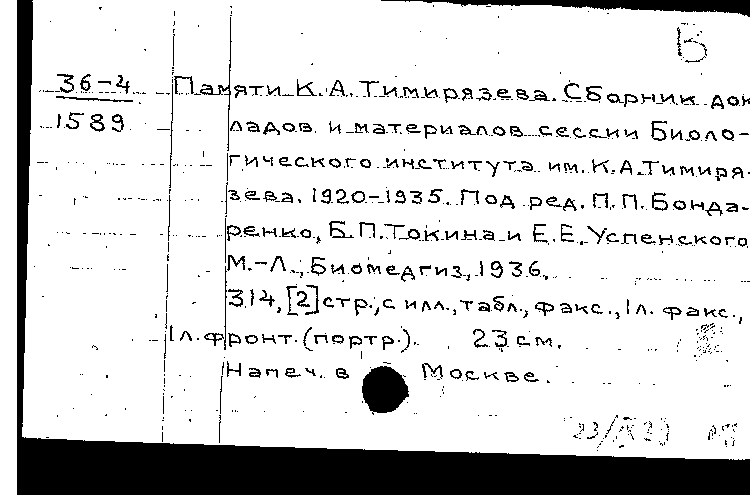 В
36-4 Памяти К.А.Тимирязева. Сборник док
1589 ладов и материалов сессии Биоло-
гического института им. К.А.Тимиря-
зева. 1920-1935. Под ред. П.П.Бонда-
ренко, Б.П.Токина и Е.Е.Успенского
М.-Л., Биомедгиз, 1936.
314, [2] стр., с илл., табл., факс., 1л. факс.,
1л. фронт. (портр.). 23 см.
Напеч. в Москве.